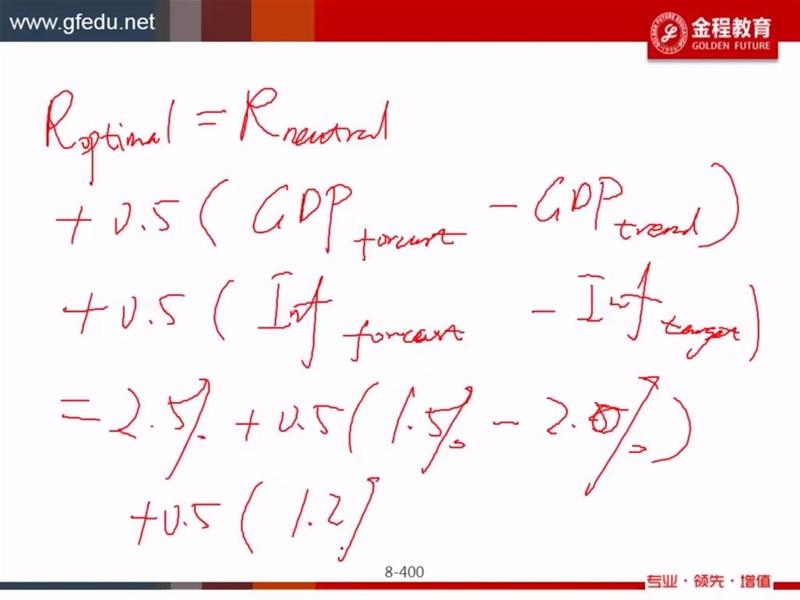 www.gfedu.net
金程教育
GOLDEN FUTURE
R optimal = R neutral
+ 0.5 ( GDP forcast - GDP trend )
+ 0.5 ( Inf forcast - Inf target )
= 2.5% + 0.5 ( 1.5% - 2.0% )
+ 0.5 ( 1.2
8-400
专业·领先·增值